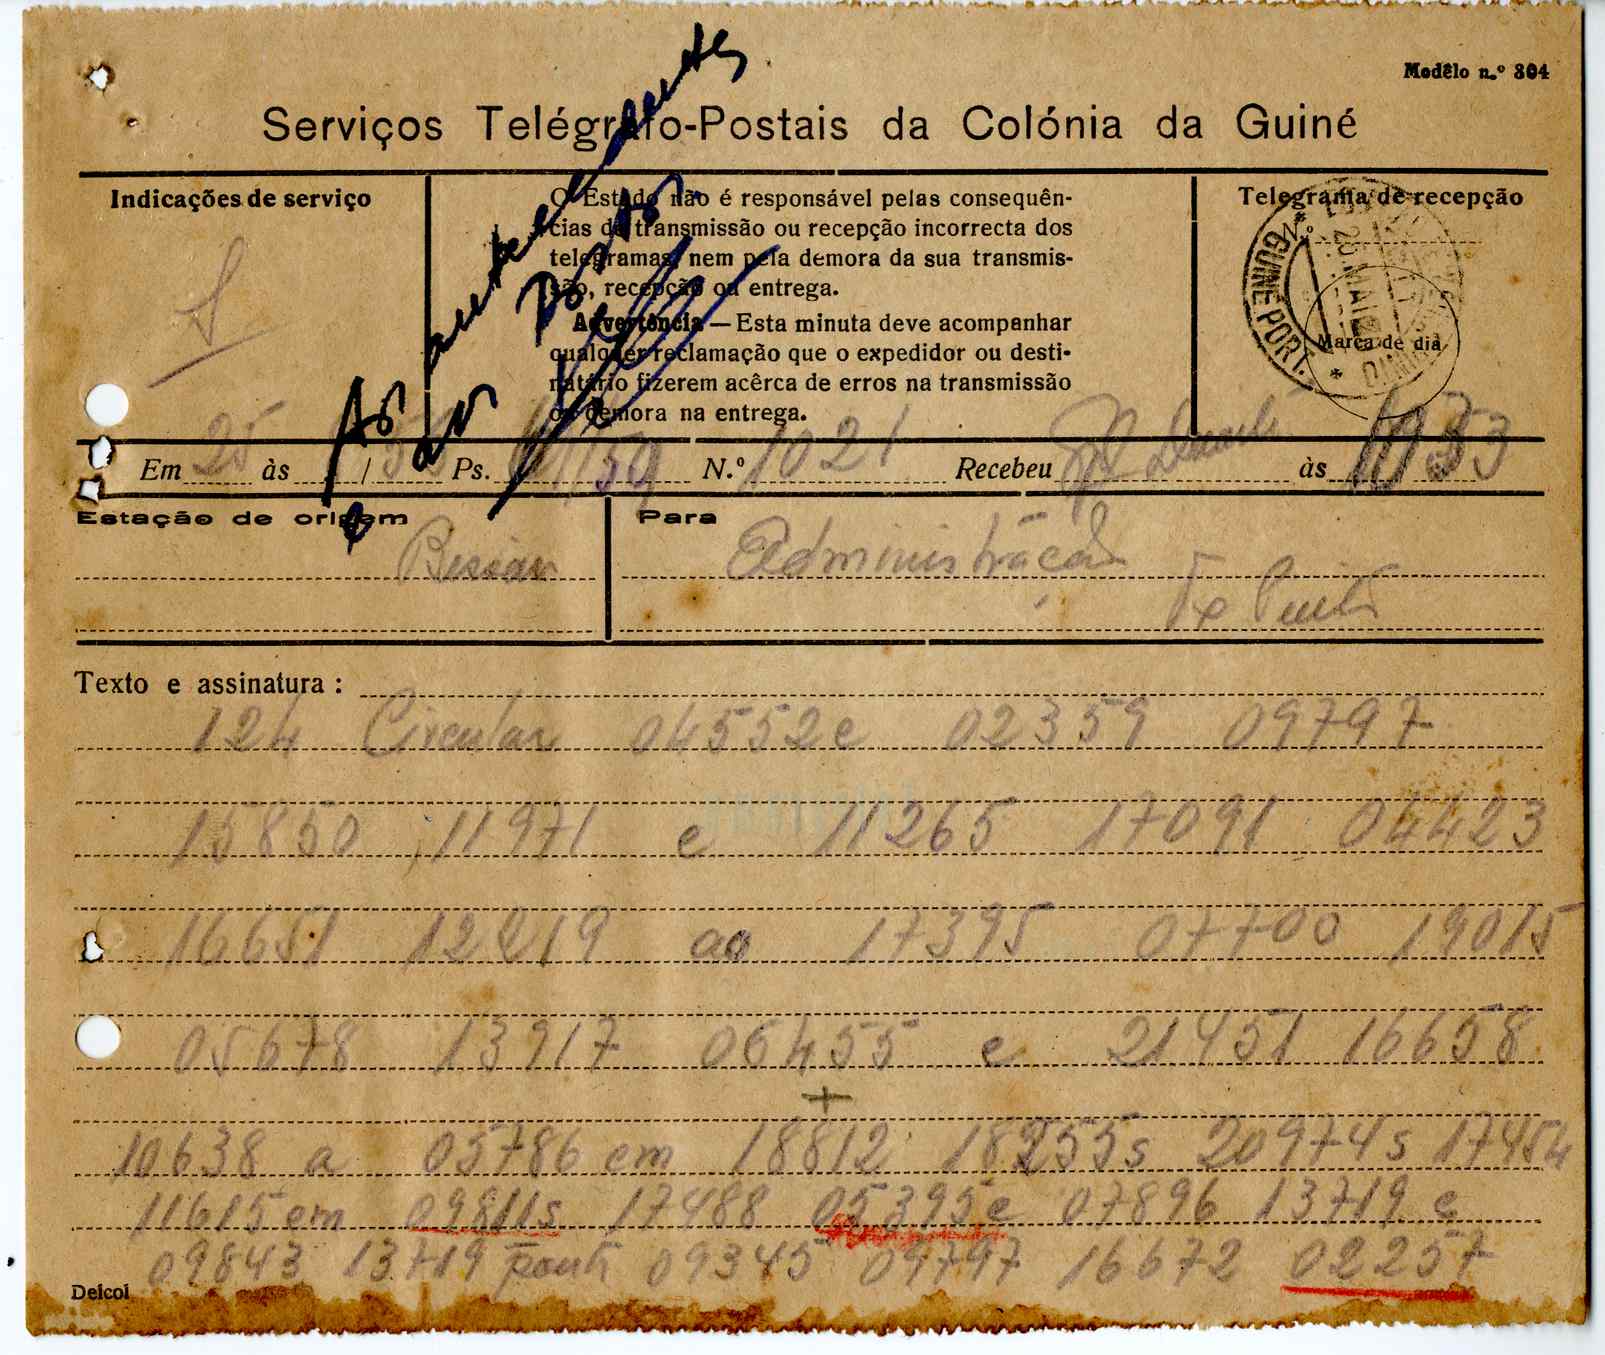 Modêlo n.º 304
Serviços Telégrafo-Postais da Colónia da Guiné
Indicações de serviço
S
O Estado não é responsável pelas consequên-
cias da transmissão ou recepção incorrecta dos
telegramas, nem pela demora da sua transmis-
são, recepção ou entrega.
Advertência — Esta minuta deve acompanhar
qualquer reclamação que o expedidor ou desti-
natário fizerem acêrca de erros na transmissão
ou demora na entrega.
Telegrama de recepção
N.º
GUINÉ PORT.
Marca de dia
As antecedentes
Em 25 às / Ps. /59 N.º 1021 Recebeu às 1033
Estação de origem
Bissau
Para
Administração
Texto e assinatura :
124 Circular 04552e 02359 09797
15850 11971 e 11265 17091 04423
16651 12219 ao 17395 07700 19015
05678 13917 06455 e 21451 16658
+
10638 a 05786 em 18812 18255s 20974s 17454
11615em 09811s 17488 05395e 07896 13719 e
09843 13719 ponto 09345 09797 16672 02257
Delcol